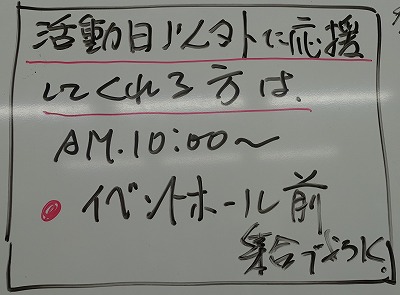 活動日以外に応援
してくれる方は、
AM.10:00〜
● イベントホール前
集合でよろしく!